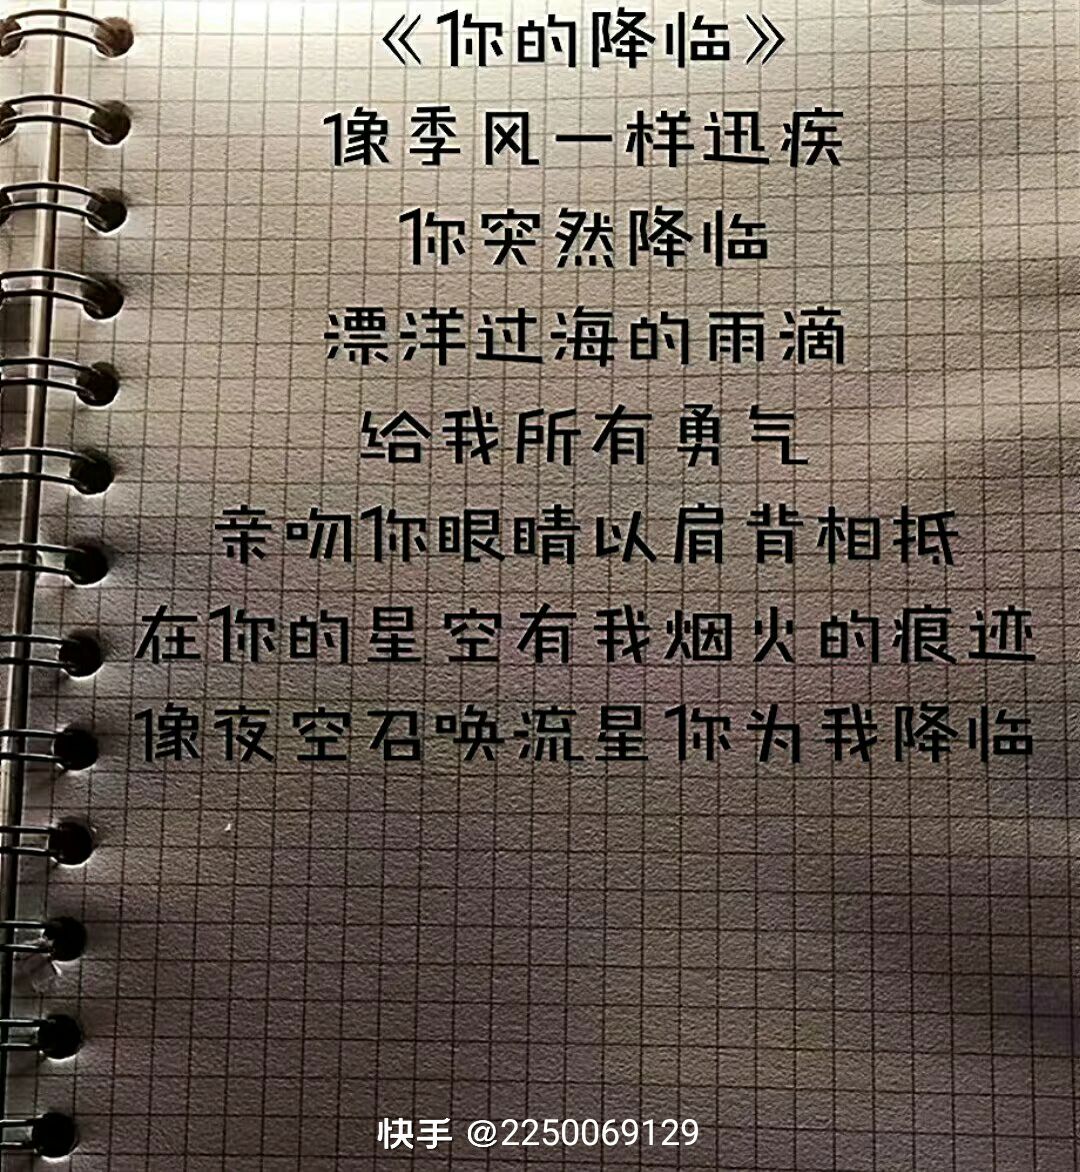 《你的降临》
像季风一样迅疾
你突然降临
漂洋过海的雨滴
给我所有勇气
亲吻你眼睛以肩背相抵
在你的星空有我烟火的痕迹
像夜空召唤流星你为我降临
快手 @2250069129